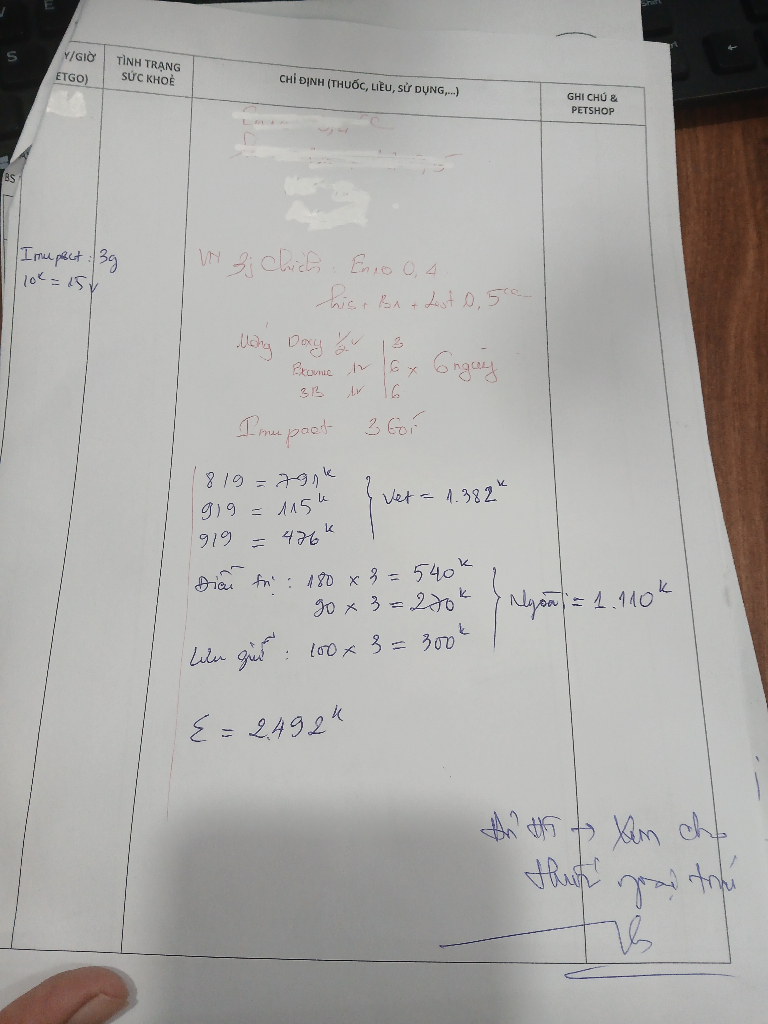 Y/GIỜ
ETGO)
TÌNH TRẠNG
SỨC KHOẺ
CHỈ ĐỊNH (THUỐC, LIỀU, SỬ DỤNG,...)
GHI CHÚ &
PETSHOP
BS
Imupect: 3g
10k = 15v
VN 3j Chích: Enro 0,4
his + B1 + Lest 0,5cc
Uống Doxy 1/2v 3
1v 6 x 6 ngày
3B 1v 6
Imupact 3 Gói
8/9 = 791k
9/9 = 115k Vet = 1.382k
9/9 = 476k
Điều trị: 180 x 3 = 540k
90 x 3 = 270k Ngoài = 1.110k
Lưu giữ: 100 x 3 = 300k
Σ = 2.492k
→ Xem cho
thuốc ngoại trú